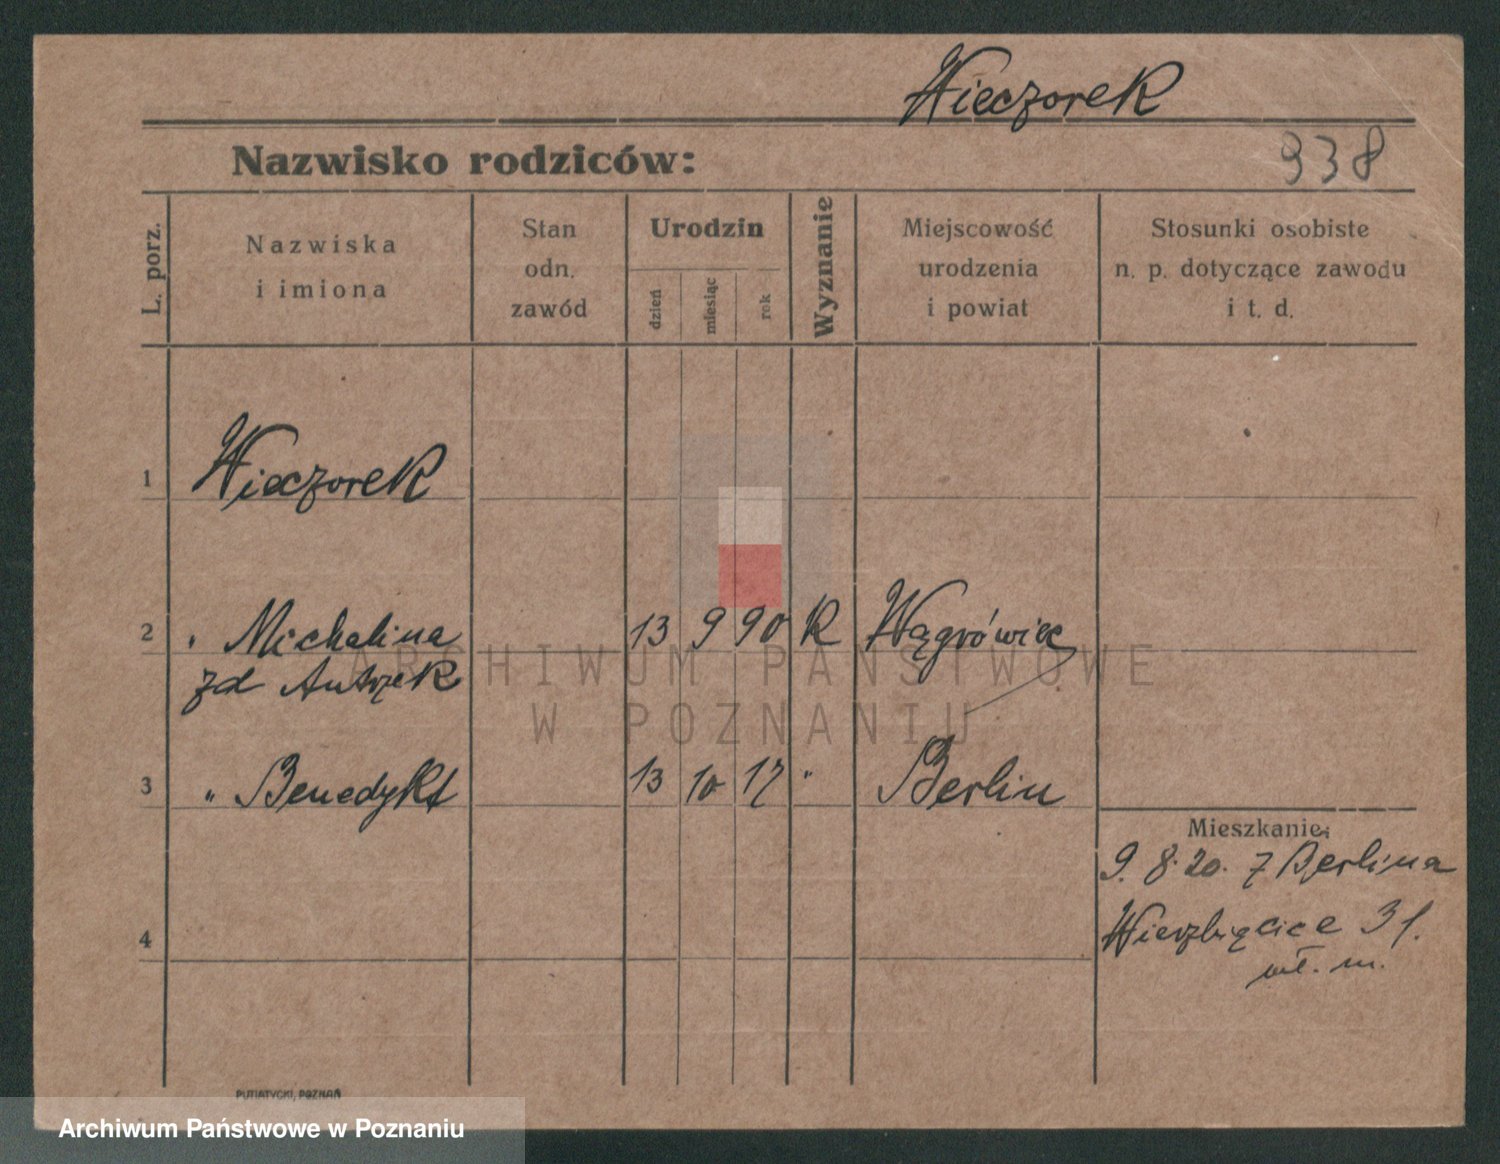 Wieczorek
Nazwisko rodziców:
938
L. porz.
Nazwiska
i imiona
Stan
odn.
zawód
Urodzin
dzień
miesiąc
rok
Wyznanie
Miejscowość
urodzenia
i powiat
Stosunki osobiste
n. p. dotyczące zawodu
i t. d.
1 Wieczorek
2 " Michalina 13 9 90 K Wągrówiec
zd Antrzek
3 " Benedykt 13 10 17 " Berlin
Mieszkanie:
9. 8. 20. z Berlina
4
Wierzbięcice 31.
wł. m.
PUTIATYCKI, POZNAŃ
ARCHIWUM PAŃSTWOWE
W POZNANIU
Archiwum Państwowe w Poznaniu